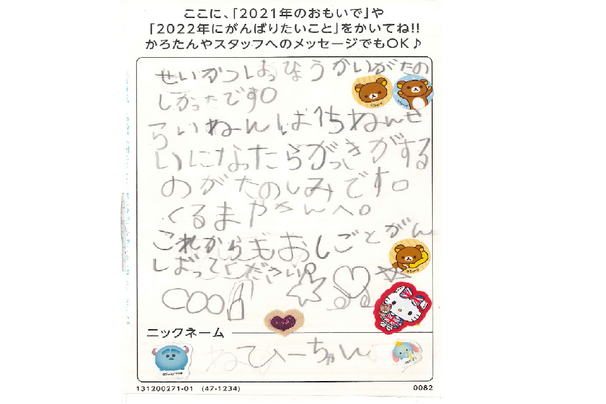 ここに、「2021年のおもいで」や
「2022年にがんばりたいこと」をかいてね!!
かろたんやスタッフへのメッセージでもOK♪
せいかつはっぴょうかいがたの
しかったです。
らいねんは1ねんせ
いになったらがっきがする
のがたのしみです。
くるまやさんへ。
これからもおしごとがん
ばってください。
ニックネーム
ひーちゃん
131200271-01 (47-1234)
0082